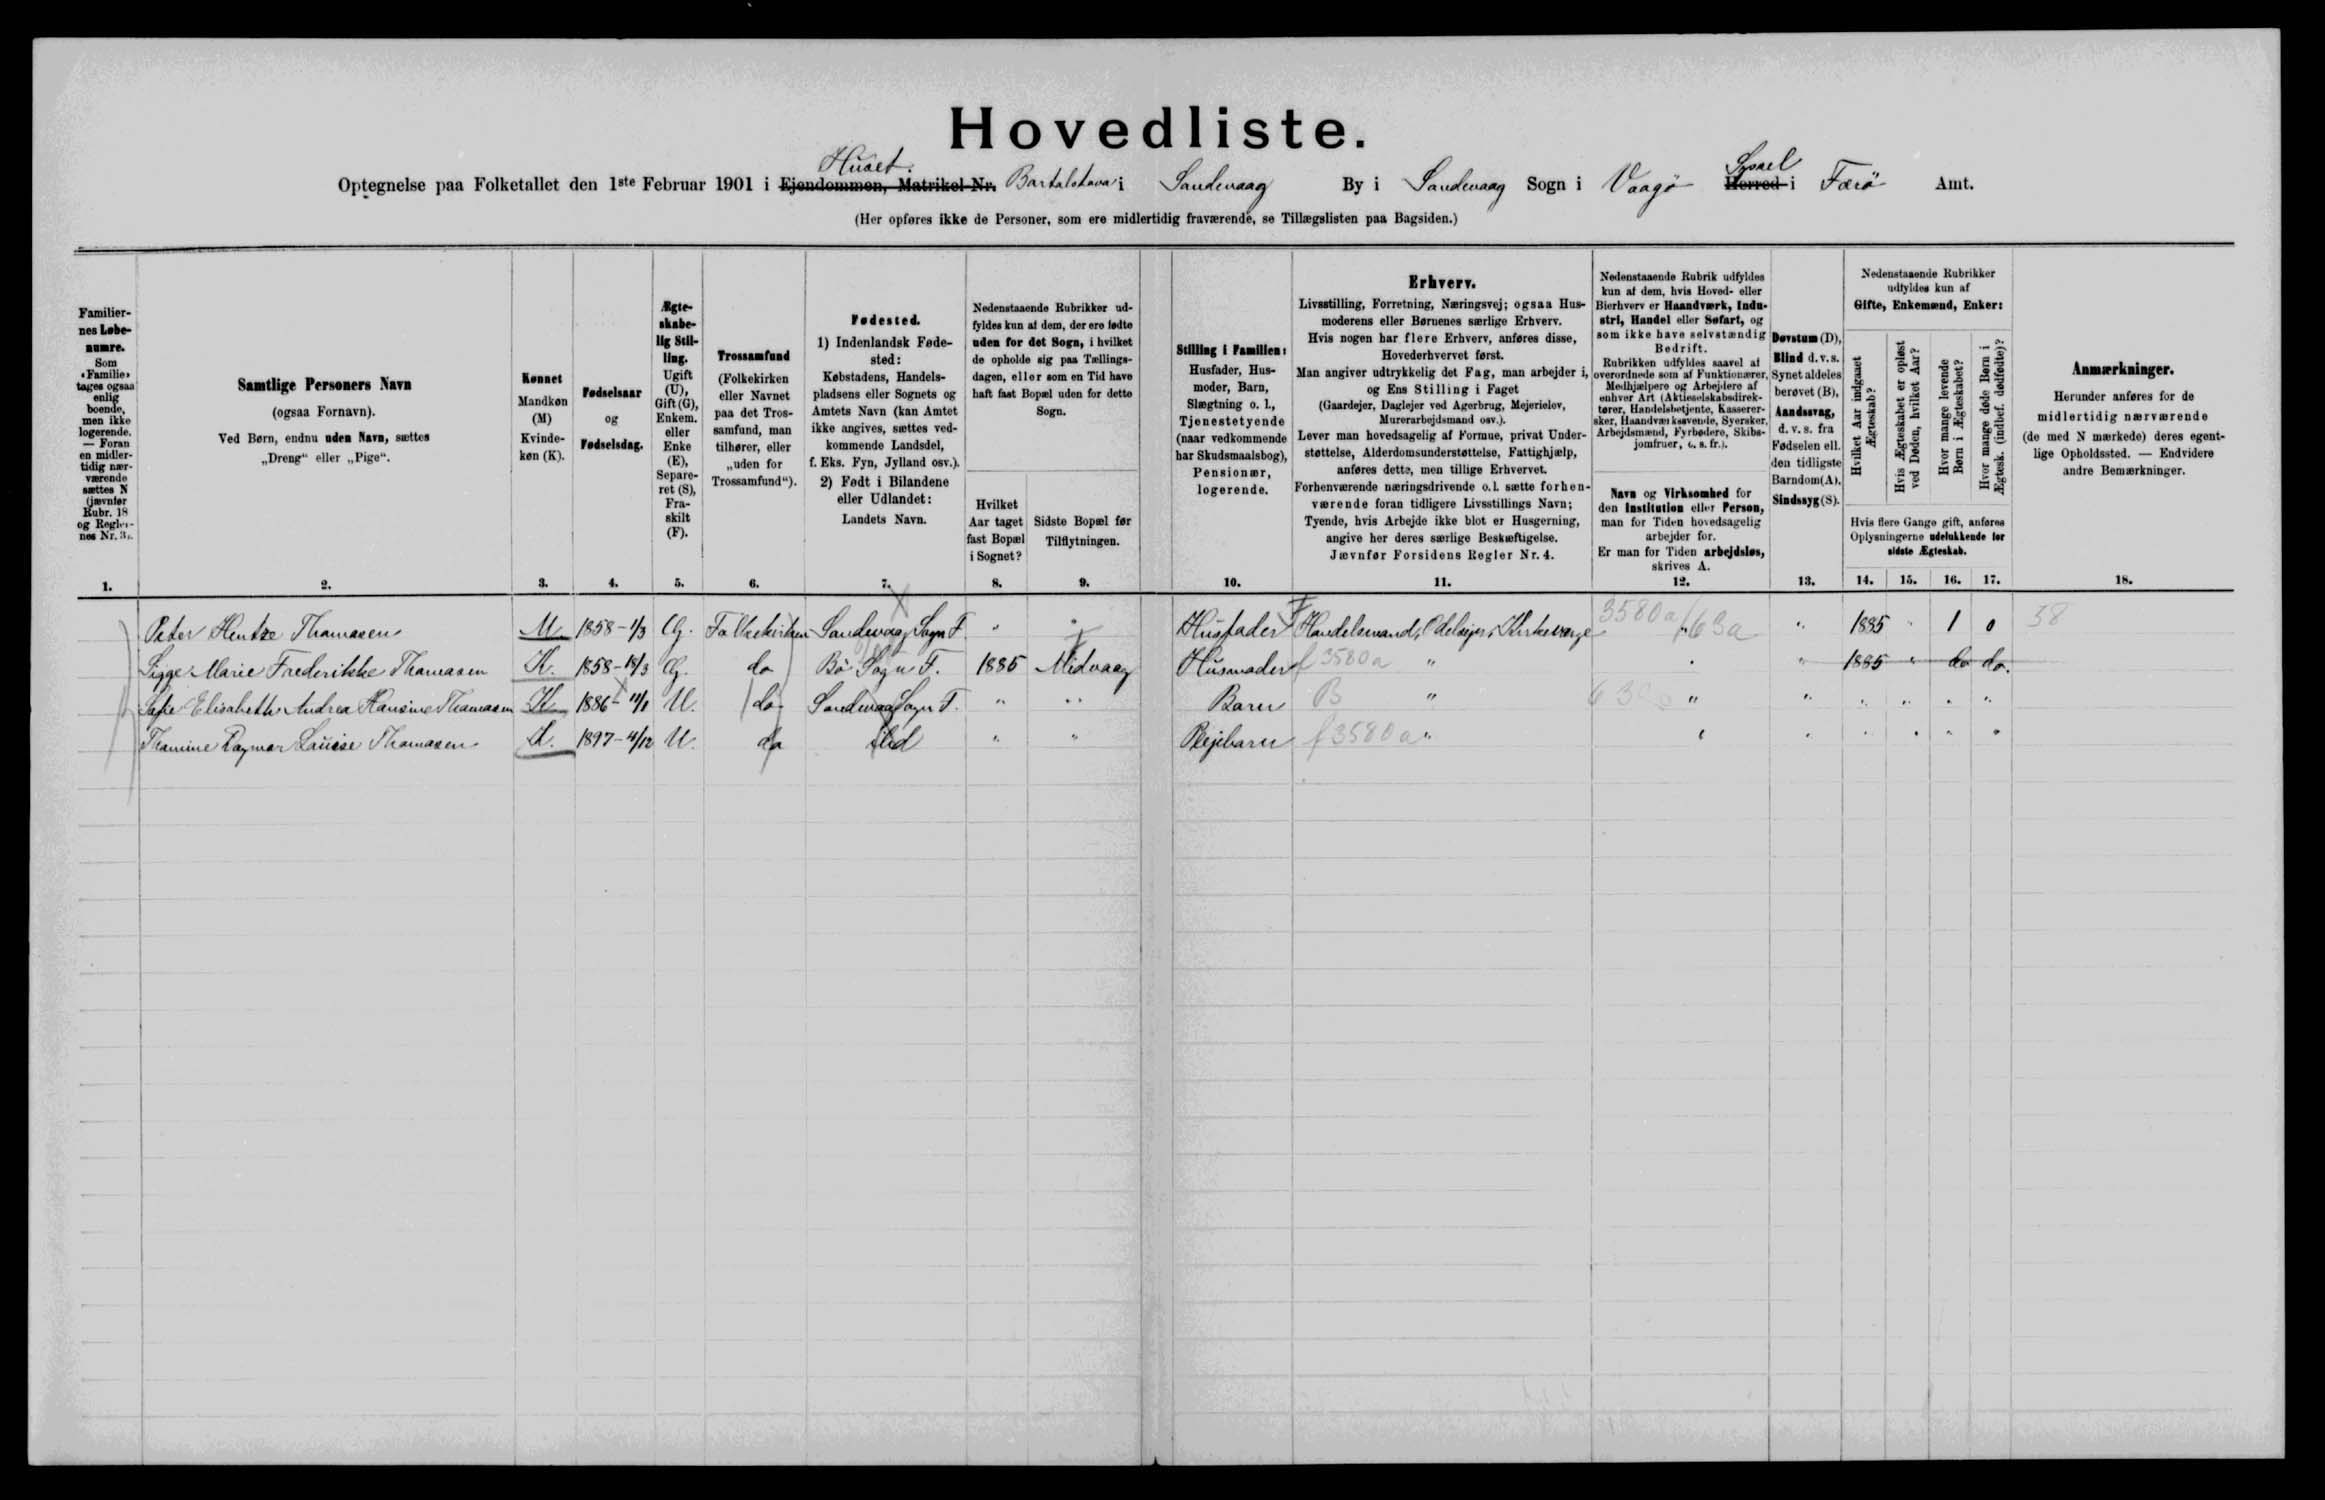 Hovedliste.
Huset.
Syssel
Optegnelse paa Folketallet den 1ste Februar 1901 i Ejendommen, Matrikel-Nr. Bartalstova i Sandevaag By i Sandevaag Sogn i Vaagø Herred i Færø Amt.
(Her opføres ikke de Personer, som ere midlertidig fraværende, se Tillægslisten paa Bagsiden.)
Familier-
nes Løbe-
numre.
Som
«Familie»
tages ogsaa
enlig
boende,
men ikke
logerende.
— Foran
en midler-
tidig nær-
værende
sættes N
(jævnfør
Rubr. 18
og Regler-
nes Nr. 3).
1.
Samtlige Personers Navn
(ogsaa Fornavn).
Ved Børn, endnu uden Navn, sættes
„Dreng“ eller „Pige“.
2.
Kønnet
Mandkøn
(M)
Kvinde-
køn (K).
3.
Fødselsaar
og
Fødselsdag.
4.
Ægte-
skabe-
lig Stil-
ling.
Ugift
(U),
Gift (G),
Enkem.
eller
Enke
(E),
Separe-
ret (S),
Fra-
skilt
(F).
5.
Trossamfund
(Folkekirken
eller Navnet
paa det Tros-
samfund, man
tilhører, eller
„uden for
Trossamfund“).
6.
Fødested.
1) Indenlandsk Føde-
sted:
Købstadens, Handels-
pladsens eller Sognets og
Amtets Navn (kan Amtet
ikke angives, sættes ved-
kommende Landsdel,
f. Eks. Fyn, Jylland osv.).
2) Født i Bilandene
eller Udlandet:
Landets Navn.
7.
Nedenstaaende Rubrikker ud-
fyldes kun af dem, der ere fødte
uden for det Sogn, i hvilket
de opholde sig paa Tællings-
dagen, eller som en Tid have
haft fast Bopæl uden for dette
Sogn.
Hvilket
Aar taget
fast Bopæl
i Sognet?
8.
Sidste Bopæl før
Tilflytningen.
9.
Stilling i Familien:
Husfader, Hus-
moder, Barn,
Slægtning o. l.,
Tjenestetyende
(naar vedkommende
har Skudsmaalsbog),
Pensionær,
logerende.
10.
Erhverv.
Livsstilling, Forretning, Næringsvej; ogsaa Hus-
moderens eller Børnenes særlige Erhverv.
Hvis nogen har flere Erhverv, anføres disse,
Hovederhvervet først.
Man angiver udtrykkelig det Fag, man arbejder i,
og Ens Stilling i Faget
(Gaardejer, Daglejer ved Agerbrug, Mejerielev,
Murerarbejdsmand osv.).
Lever man hovedsagelig af Formue, privat Under-
støttelse, Alderdomsunderstøttelse, Fattighjælp,
anføres dette, men tillige Erhvervet.
Forhenværende næringsdrivende o. l. sætte forhen-
værende foran tidligere Livsstillings Navn;
Tyende, hvis Arbejde ikke blot er Husgerning,
angive her deres særlige Beskæftigelse.
Jævnfør Forsidens Regler Nr. 4.
11.
Nedenstaaende Rubrik udfyldes
kun af dem, hvis Hoved- eller
Bierhverv er Haandværk, Indu-
stri, Handel eller Søfart, og
som ikke have selvstændig
Bedrift.
Rubrikken udfyldes saavel af
overordnede som af Funktionærer,
Medhjælpere og Arbejdere af
enhver Art (Aktieselskabsdirek-
tører, Handelsbetjente, Kasserer-
sker, Haandværkssvende, Syersker,
Arbejdsmænd, Fyrbødere, Skibs-
jomfruer, o. s. fr.).
Navn og Virksomhed for
den Institution eller Person,
man for Tiden hovedsagelig
arbejder for.
Er man for Tiden arbejdsløs,
skrives A.
12.
Døvstum (D),
Blind d. v. s.
Synet aldeles
berøvet (B),
Aandssvag,
d. v. s. fra
Fødselen ell.
den tidligste
Barndom (A),
Sindssyg (S).
13.
Nedenstaaende Rubrikker
udfyldes kun af
Gifte, Enkemænd, Enker:
Hvilket Aar indgaaet
Ægteskab?
Hvis Ægteskabet er opløst
ved Døden, hvilket Aar?
Hvor mange levende
Børn i Ægteskabet?
Hvor mange døde Børn i
Ægtesk. (indbef. dødfødte)?
Hvis flere Gange gift, anføres
Oplysningerne udelukkende for
sidste Ægteskab.
14. 15. 16. 17.
Anmærkninger.
Herunder anføres for de
midlertidig nærværende
(de med N mærkede) deres egent-
lige Opholdssted. — Endvidere
andre Bemærkninger.
18.
Peter Hentze Thomasen M. 1858-1/3 G. Folkekirken Sandevaag Sogn F. " " Husfader Handelsmand, Odelsejer, Kirkeværge 3580a /63a " 1885 " 1 0 38
Sigge Marie Frederikke Thomasen K. 1858-18/3 G. do Bø Sogn F. 1885 Midvaag Husmoder f 3580a " " " 1885 " do do.
Sofie Elisabeth Andrea Hansine Thomasen K. 1886-11/1 U. do Sandevaag Sogn F. " " Barn B " " " " " " "
Thomine Dagmar Louise Thomasen K. 1897-4/12 U. do ibd " " Plejebarn f 3580a " " " " " " "